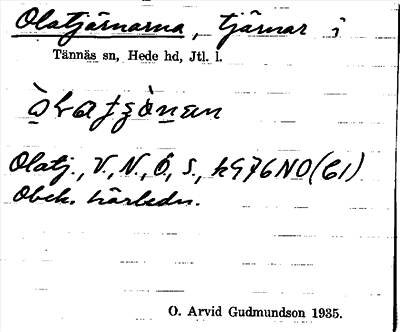 Olatjärnarna, tjärnar i
Tännäs sn, Hede hd, Jtl. l.
Olatj., V., N., Ö., S., k976NO(61)
Obek. härledn.
O. Arvid Gudmundson 1935.